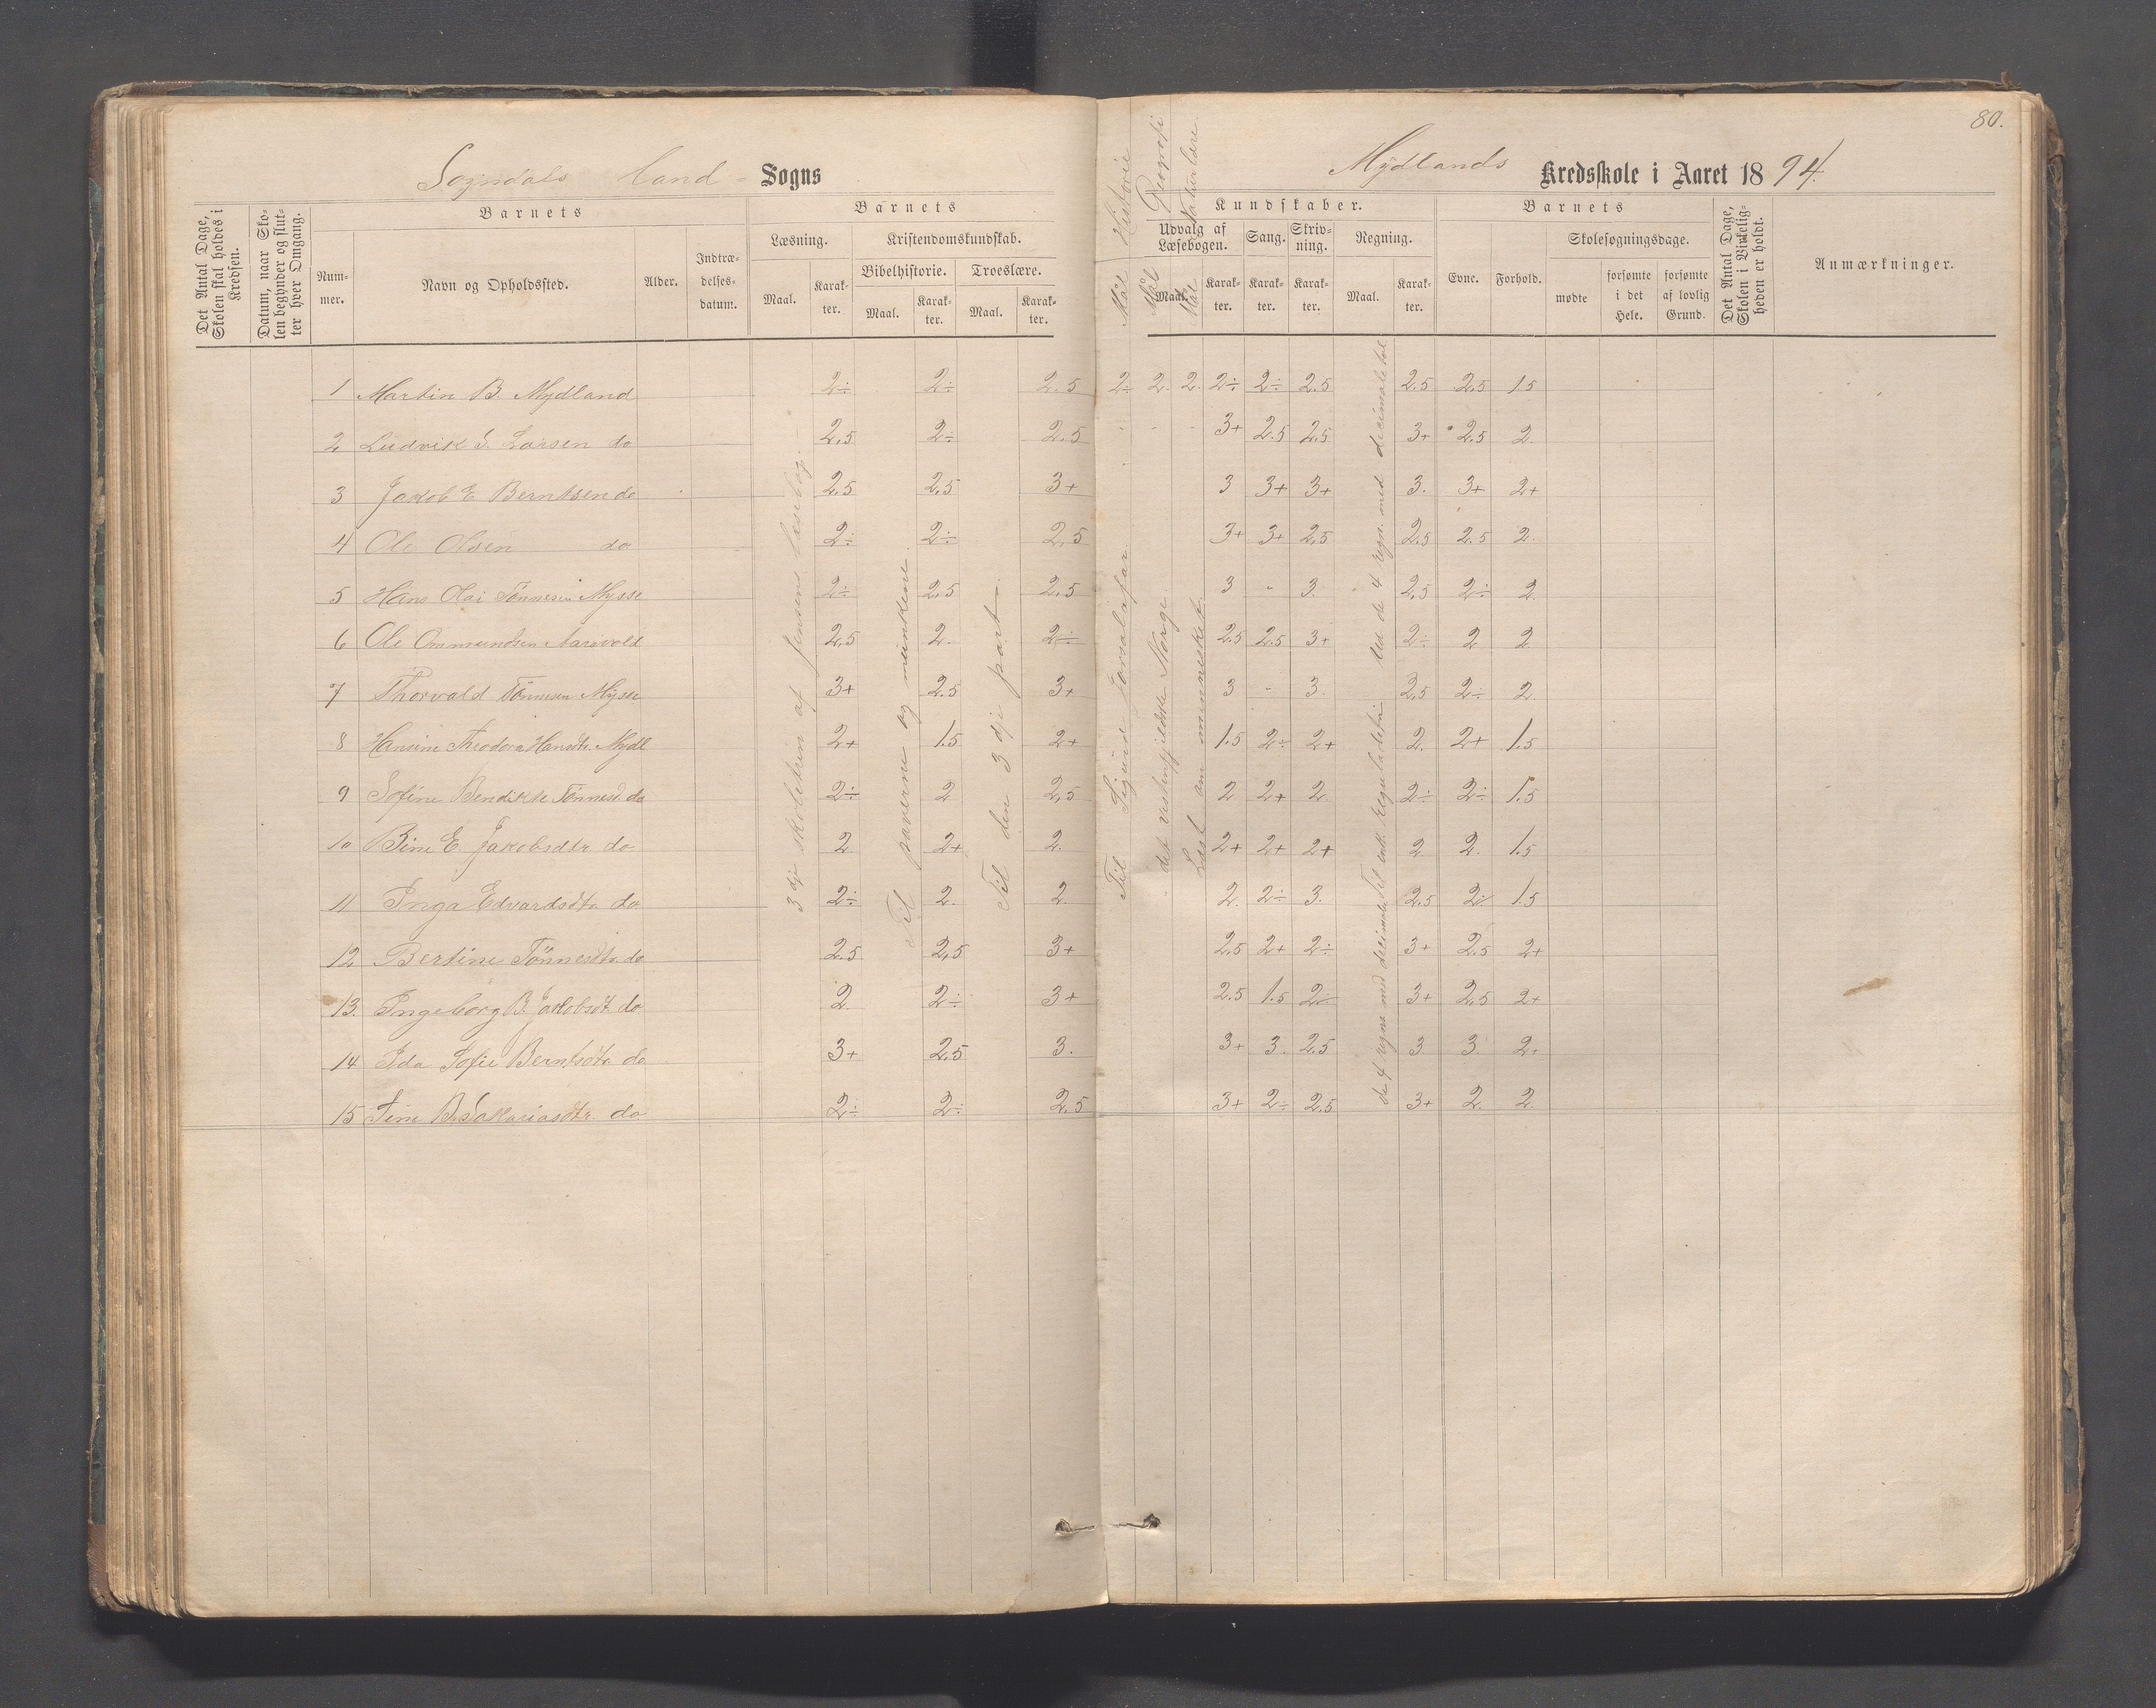 80.
Sogndals land - Sogns
Mydlands Kredsskole i Aaret 1894.
Det Antal Dage, Skolen skal holdes i Kredsen.
Datum, naar Skolen begynder og slutter hver Omgang.
Barnets
Nummer.
Navn og Opholdssted.
Alder.
Indtrædelsesdatum.
Barnets
Læsning.
Maal.
Karakter.
Kristendomskundskab.
Bibelhistorie.
Maal.
Karakter.
Troeslære.
Maal.
Karakter.
Mål Historie
Mål Geografi
Mål Naturlære
Kundskaber.
Udvalg af Læsebogen.
Maal.
Karakter.
Sang.
Karakter.
Skrivning.
Karakter.
Regning.
Maal.
Karakter.
Barnets
Evne.
Forhold.
Skolesøgningsdage.
mødte
forsømte i det Hele.
forsømte af lovlig Grund.
Det Antal Dage, Skolen i Virkeligheden er holdt.
Anmærkninger.
1 Martin B. Mydland 2÷ 2÷ 2.5 2÷ 2. 2. 2÷ 2÷ 2.5 2.5 2.5 1.5
2 Ludvik S. Larsen do 2.5 2÷ 2.5 3+ 2.5 2.5 3+ 2.5 2
3 Jakob E Berntsen do 2.5 2.5 3+ 3 3+ 3+ 3. 3+ 2+
4 Ole Olsen do 2÷ 2÷ 2.5 3+ 3+ 2.5 2.5 2.5 2.
5 Hans Olai Tönnesen Mysse 2÷ 2.5 2.5 3 - 3. 2.5 2÷ 2
6 Ole Ommundsen Aarsvold 2.5 2. 2÷ 2.5 2.5 3+ 2÷ 2 2
7 Thorvald Tönnesen Mysse 3+ 2.5 3+ 3 - 3. 2.5 2÷ 2.
8 Hansine Theodora Hansdtr. Mydl 2+ 1.5 2+ 1.5 2÷ 2+ 2. 2+ 1.5
9 Sofine Bendikte Tönnesd. do 2÷ 2 2.5 2 2+ 2 2÷ 2÷ 1.5
10 Bine E. Jakobsdtr do 2 2+ 2. 2+ 2+ 2+ 2 2. 1.5
11 Inga Edvardsdtr do 2÷ 2. 2. 2. 2÷ 3. 2.5 2÷ 1.5
12 Bertine Tönnesdtr. do 2.5 2.5 3+ 2.5 2+ 2÷ 3+ 2.5 2+
13. Ingeborg B. Jakobsdt do 2 2÷ 3+ 2.5 1.5 2÷ 3+ 2.5 2+
14 Ida Sofie Berntsdtr do 3+ 2.5 3. 3+ 3. 2.5 3 3. 2+
15 Tine B. Sakariasdtr. do 2÷ 2÷ 2.5 3+ 2÷ 2.5 3+ 2. 2.
3dje skoletrin af Jensens læsebog.
Til paverne og munkene.
Til den 3dje part.
Til Sigurd Jorsalafar.
det vestenfjeldske Norge.
Læst om mennesket.
de 4 regn. med decimaltal. Til enk. Reguladetri. Ud de 4 regn. med decimaltal.